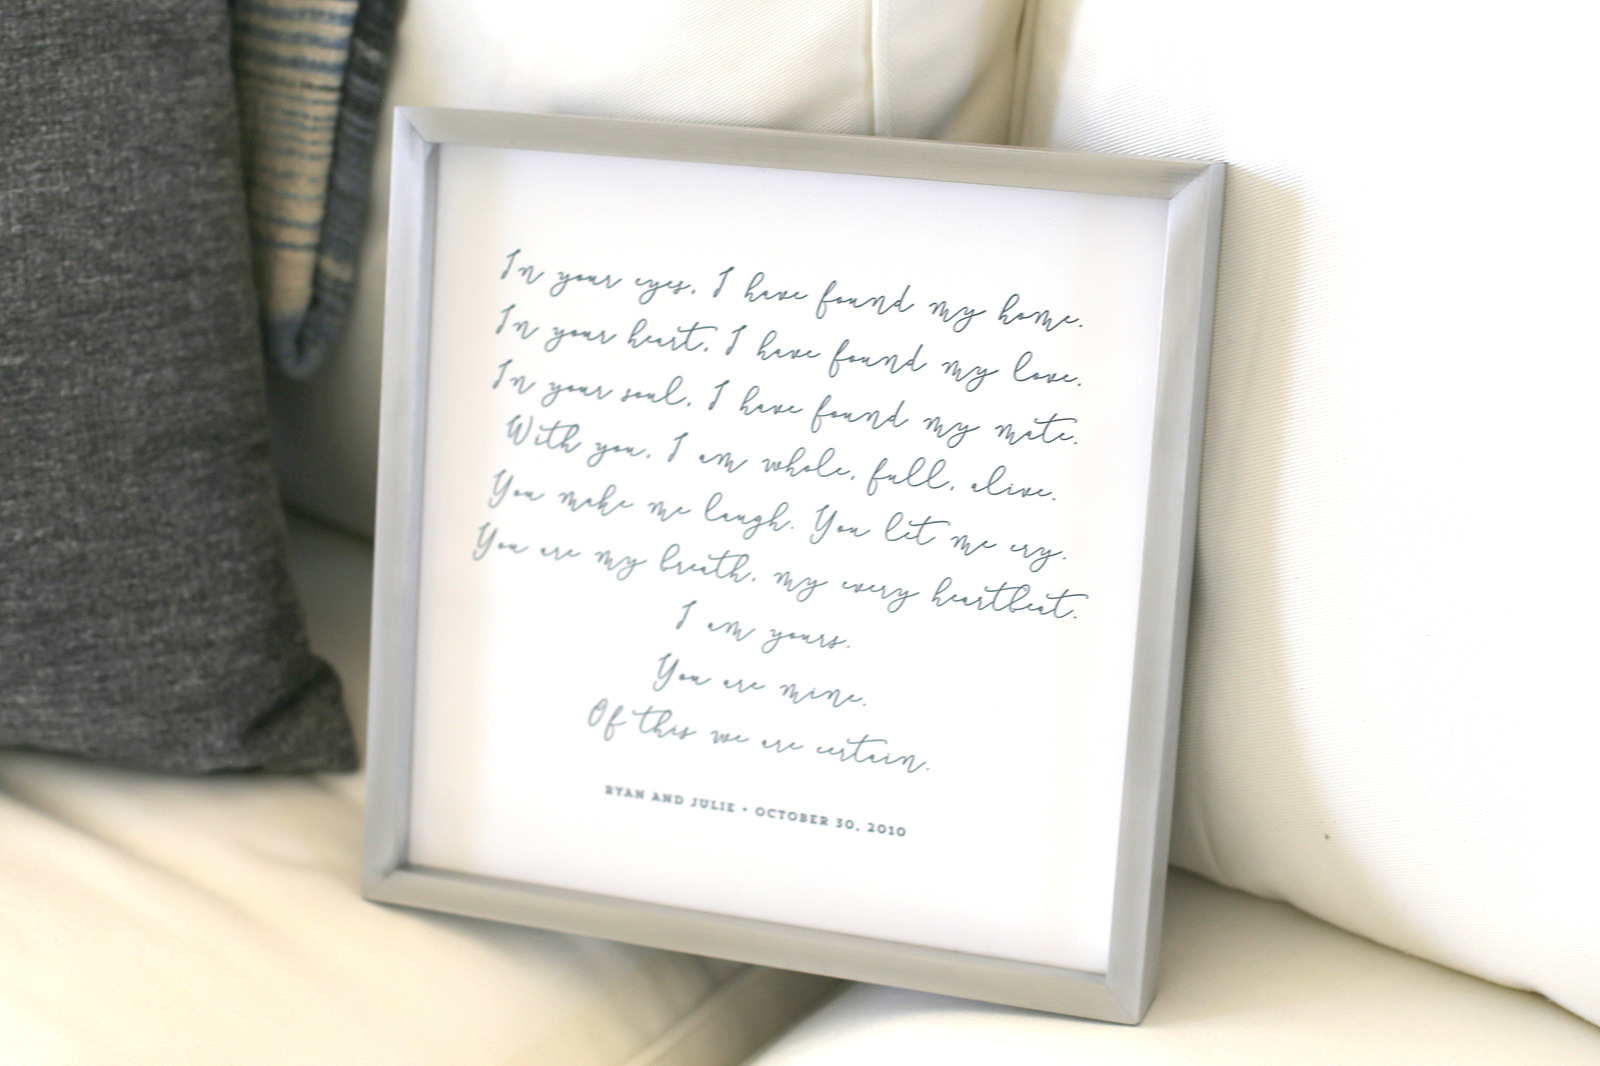 In your eyes, I have found my home.
In your heart, I have found my love.
In your soul, I have found my mate.
With you, I am whole, full, alive.
You make me laugh. You let me cry.
You are my breath, my every heartbeat.
I am yours.
You are mine.
Of this we are certain.
RYAN AND JULIE • OCTOBER 30, 2010